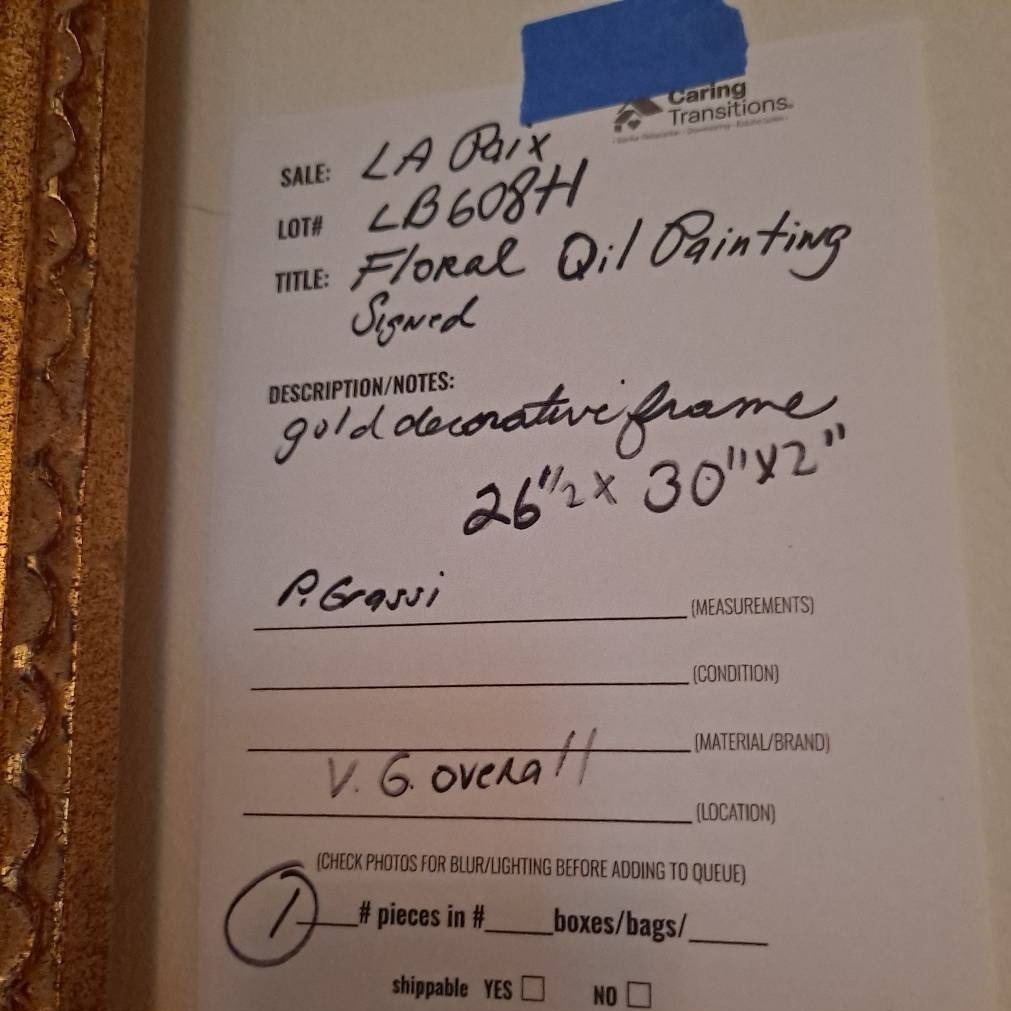 Caring
Transitions.
SALE: LA Paix
LOT# LB608H
TITLE: Floral Oil Painting
Signed
DESCRIPTION/NOTES:
gold decorative frame
26"1/2 x 30" x 2"
P. Grassi (MEASUREMENTS)
(CONDITION)
(MATERIAL/BRAND)
V. G. overall (LOCATION)
(CHECK PHOTOS FOR BLUR/LIGHTING BEFORE ADDING TO QUEUE)
1 # pieces in # boxes/bags/
shippable YES NO